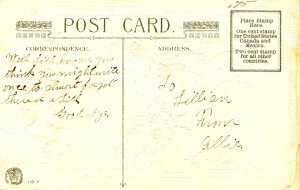 1.75
POST CARD.
Place Stamp
Here.
One cent stamp
for United States
Canada and
Mexico.
Two cent stamp
for all other
countries.
CORRESPONDENCE.
ADDRESS.
Well Lill how are you
think you might write
once to almost forgot
there is a Lill
Good bye.
To
Lillian
From
Allie